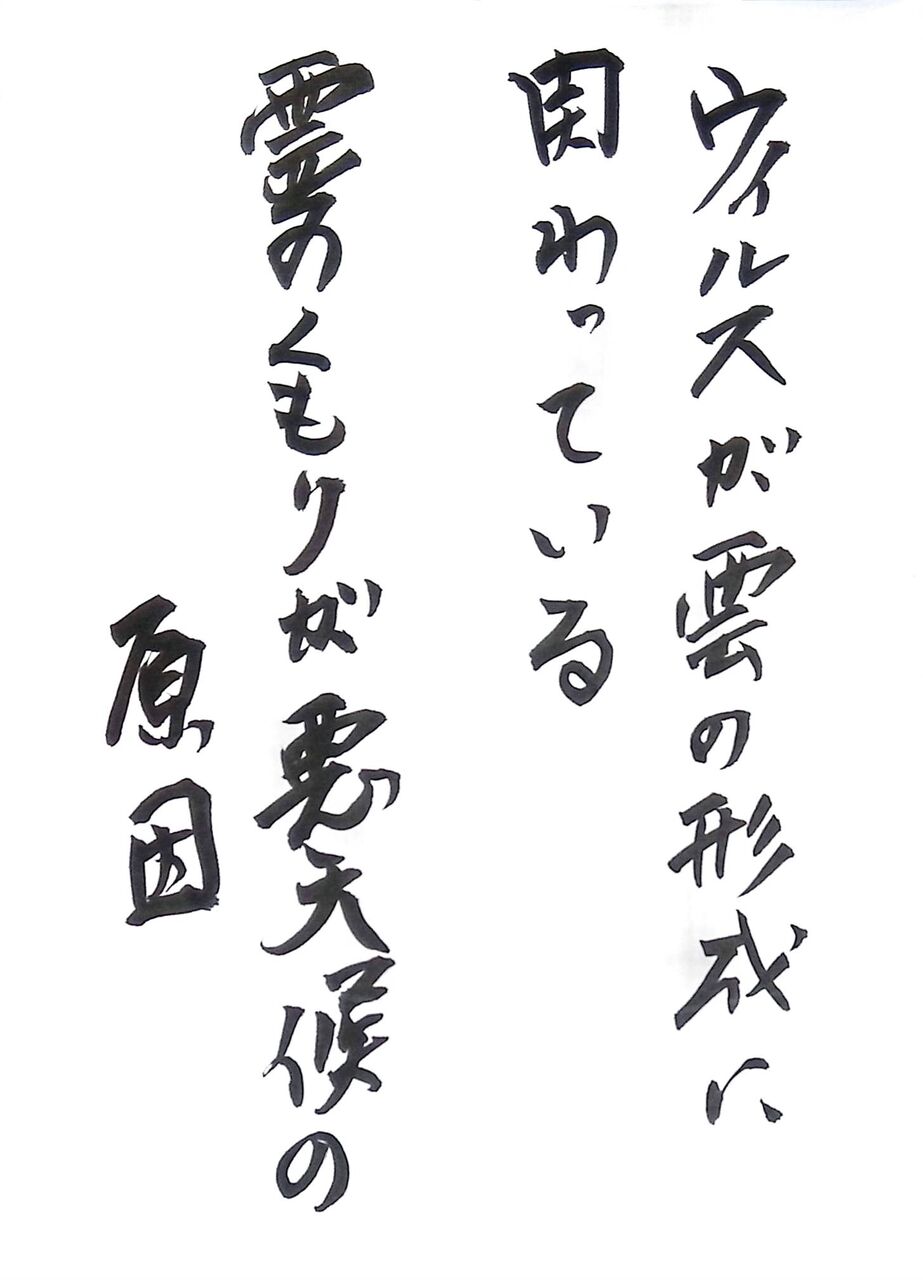 ウィルスが雲の形成に
関わっている
霊のくもりが悪天候の
原因